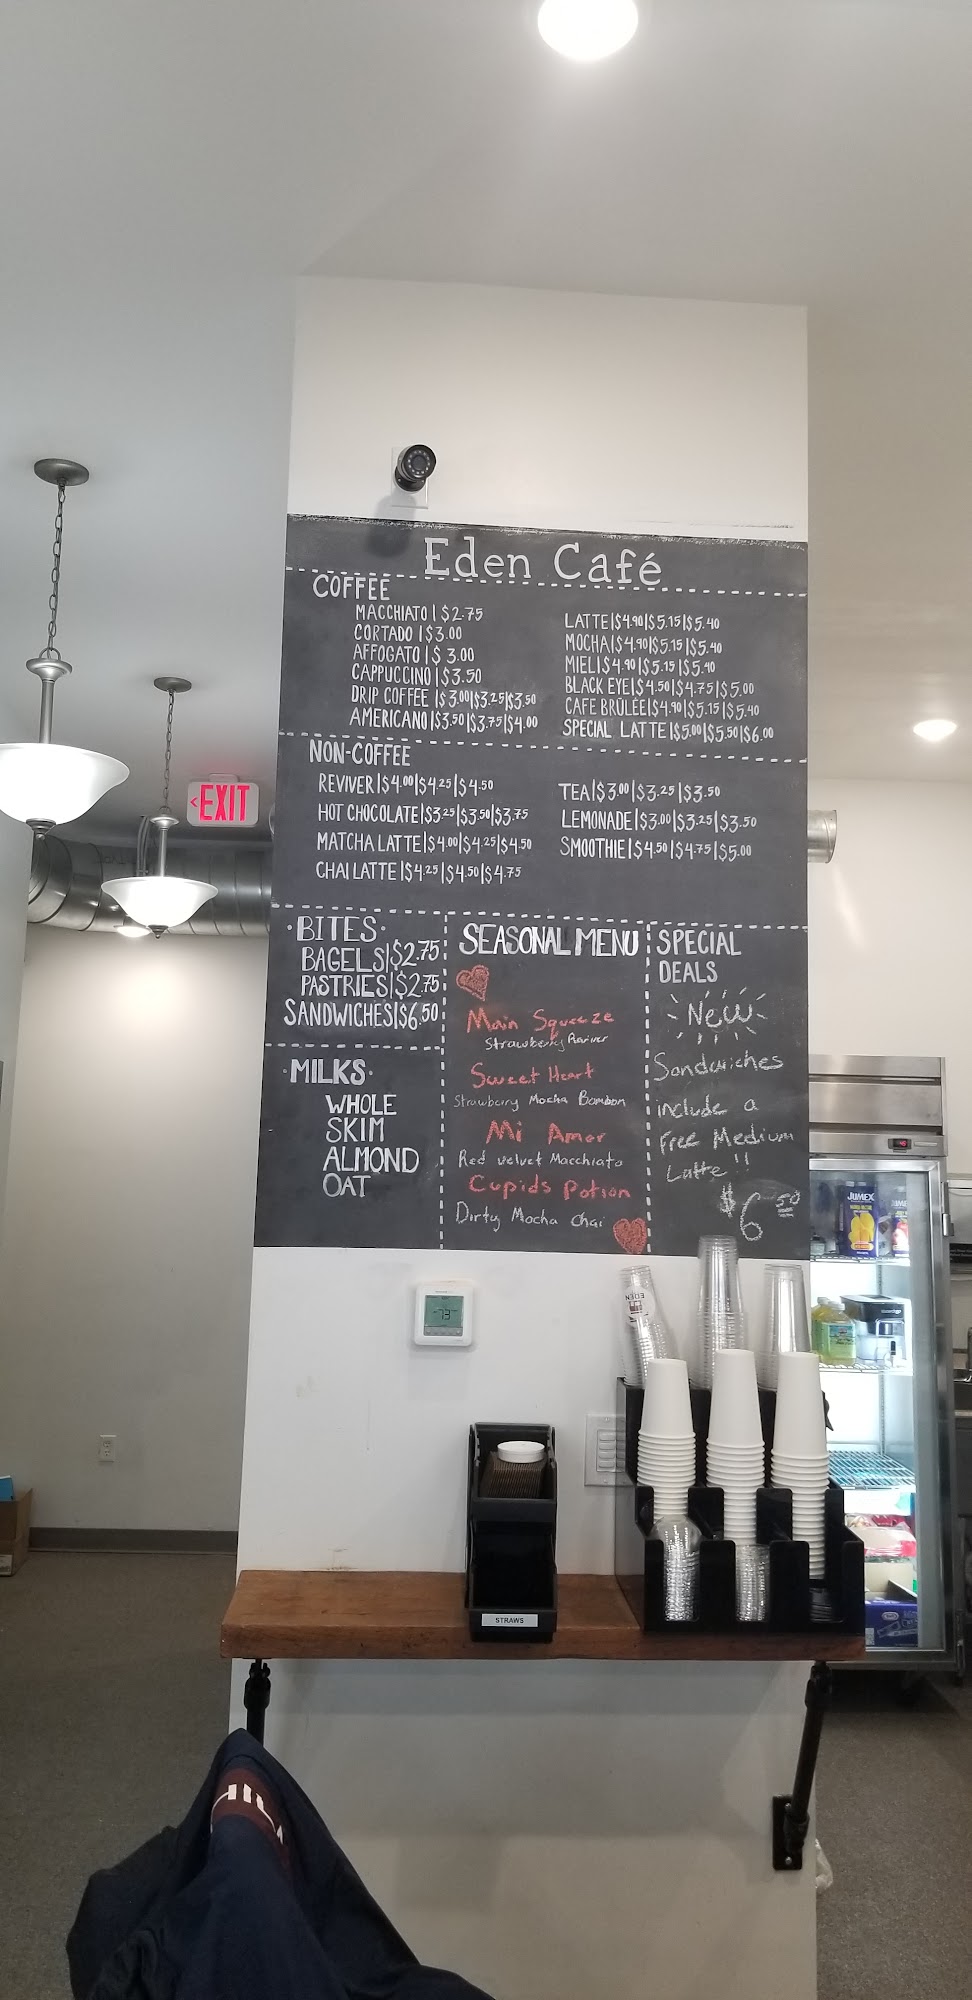 Eden Café
COFFEE
MACCHIATO | $2.75
CORTADO | $3.00
AFFOGATO | $3.00
CAPPUCCINO | $3.50
DRIP COFFEE | $3.00 | $3.25 | $3.50
AMERICANO | $3.50 | $3.75 | $4.00
LATTE | $4.90 | $5.15 | $5.40
MOCHA | $4.90 | $5.15 | $5.40
MIEL | $4.90 | $5.15 | $5.40
BLACK EYE | $4.50 | $4.75 | $5.00
CAFE BRÛLÉE | $4.90 | $5.15 | $5.40
SPECIAL LATTE | $5.00 | $5.50 | $6.00
NON-COFFEE
REVIVER | $4.00 | $4.25 | $4.50
HOT CHOCOLATE | $3.25 | $3.50 | $3.75
MATCHA LATTE | $4.00 | $4.25 | $4.50
CHAI LATTE | $4.25 | $4.50 | $4.75
TEA | $3.00 | $3.25 | $3.50
LEMONADE | $3.00 | $3.25 | $3.50
SMOOTHIE | $4.50 | $4.75 | $5.00
·BITES·
BAGELS | $2.75
PASTRIES | $2.75
SANDWICHES | $6.50
·MILKS·
WHOLE
SKIM
ALMOND
OAT
SEASONAL MENU
Main Squeeze
Strawberry Reviver
Sweet Heart
Strawberry Mocha Bombon
Mi Amor
Red velvet Macchiato
Cupids Potion
Dirty Mocha Chai
SPECIAL
DEALS
New
Sandwiches
include a
Free Medium
Latte!!
$6.50
<EXIT
73
EDEN
STRAWS
JUMEX